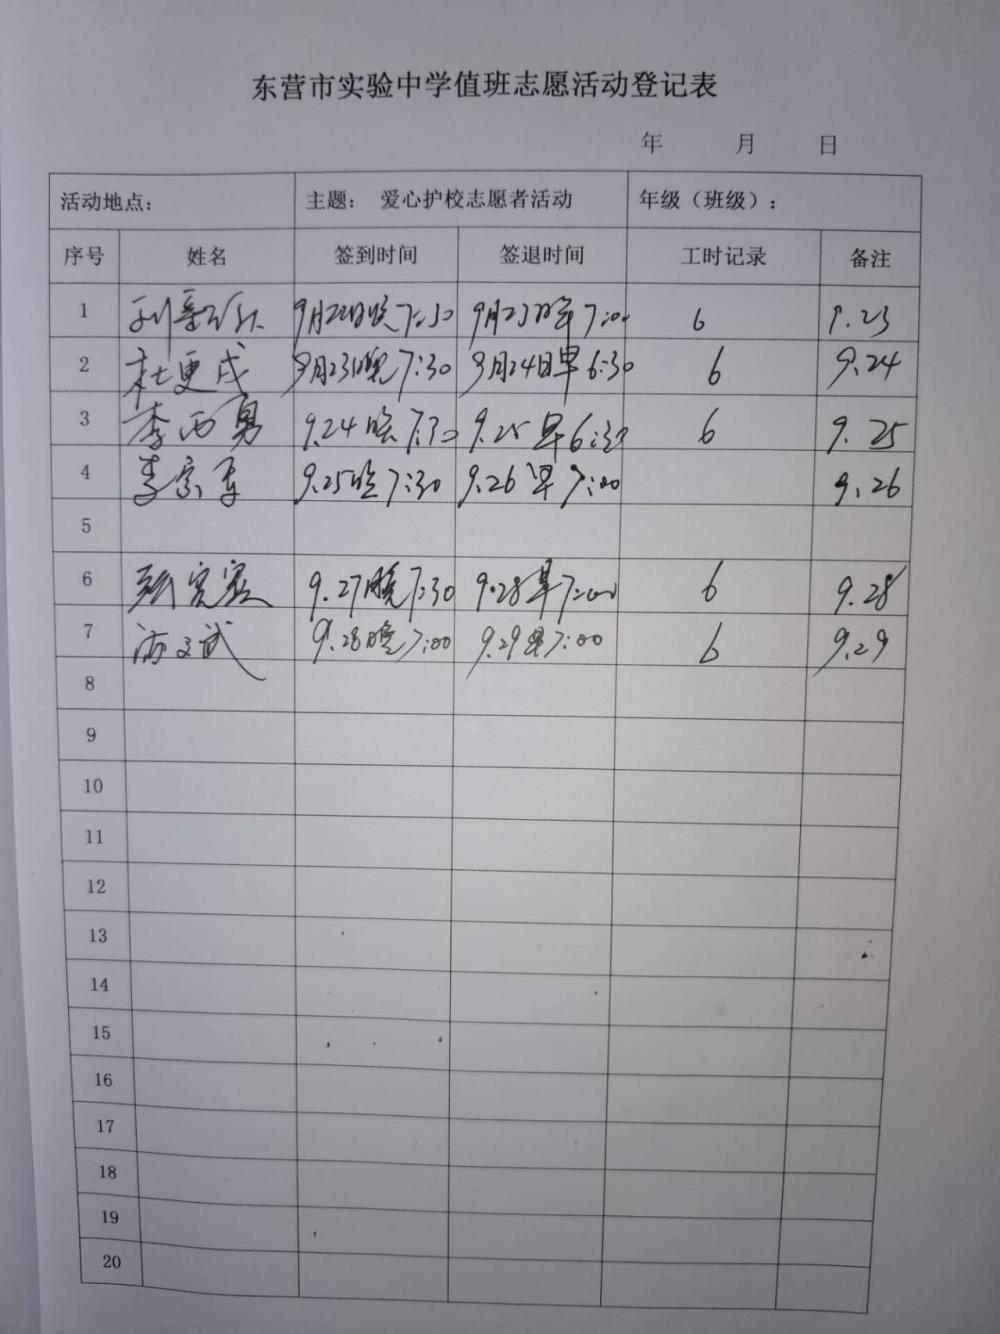 东营市实验中学值班志愿活动登记表
年 月 日
活动地点： 主题： 爱心护校志愿者活动 年级（班级）：
序号 姓名 签到时间 签退时间 工时记录 备注
1 9月22日晚7:30 9月23日早7:00 6 9.23
2 杜更戌 9月23日晚7:30 9月24日早6:30 6 9.24
3 李西勇 9.24晚7:30 9.25早6:30 6 9.25
4 李宗军 9.25晚7:30 9.26早7:00 9.26
5
6 9.27晚7:30 9.28早7:00 6 9.28
7 9.28晚7:00 9.29早7:00 6 9.29
8
9
10
11
12
13
14
15
16
17
18
19
20